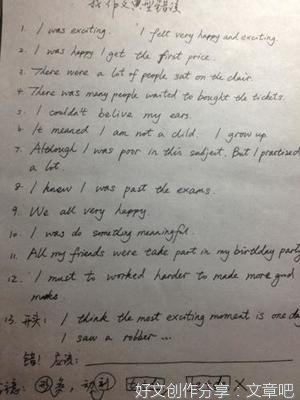 找作文典型错误
1. I was exciting. I fell very happy and exciting.
2. I was happy I get the first price.
3. There were a lot of people sat on the chair.
4. There was many people waited to bought the tickets.
5. I couldn't belive my ears.
6. It meaned I am not a child. I grow up.
7. Although I was poor in this subject. But I practised
a lot.
8. I knew I was past the exams.
9. We all very happy.
10. I was do something meaningful.
11. All my friends were take part in my birthday party
12. I must to worked harder to made more good
marks
13. 开头: I think the most exciting moment is one day
I saw a robber ...
错! 应该:
好文创作分享:文章吧